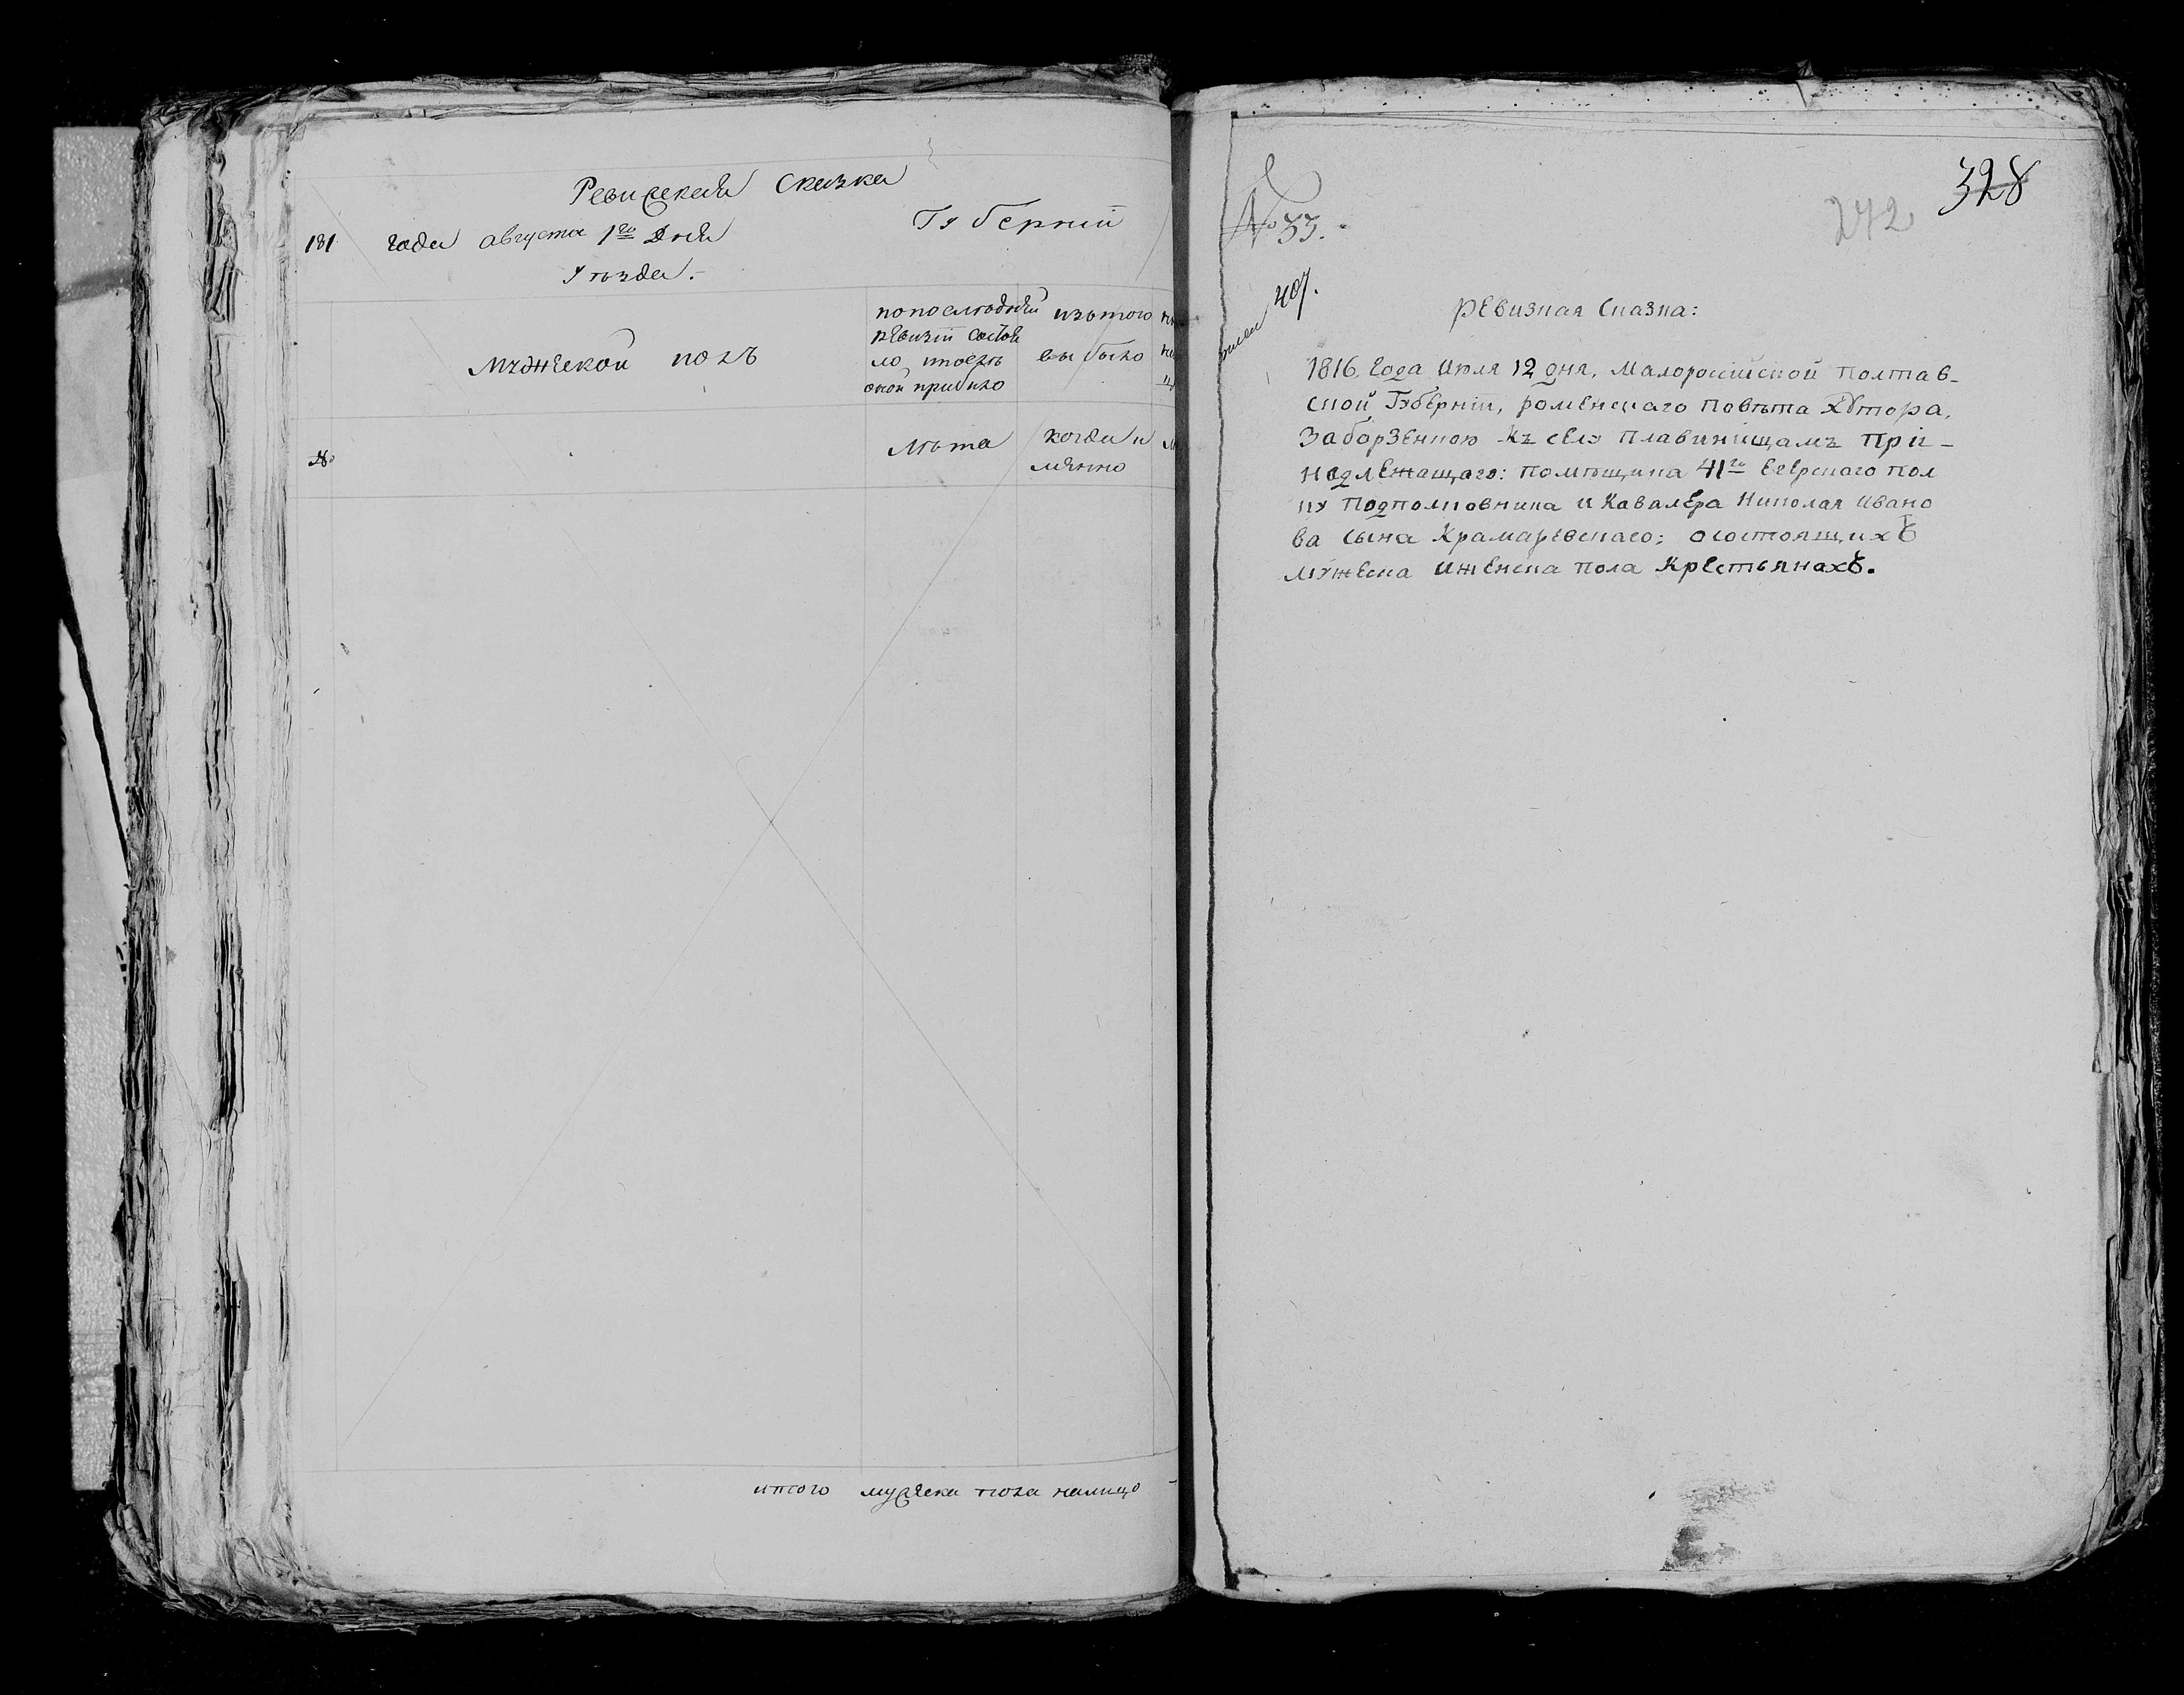 Ревизская Сказка
181 года августа 1го Дня Губернии
Уѣзда.
Мужеской полъ
по последней ревизіи состояло и после оной прибыло
изътого выбыло
№
Лѣта
когда и
мянно
итого мужеска пола налицо
328
272
№ 33.
407.
Ревизная Сказка:
1816. Года Июля 12 дня, Малоросійской Полтав-
ской Губерніи, роменскаго Повѣта Хутора,
За борзенкою Къ селу Плавинищамъ Прі-
надлежащаго: Помѣщика 41го Егерскаго пол
ку Подполковника и Кавалера Николая Ивано
ва сына Крамаревскаго; осостоящихъ
Мужеска Иженска пола Крестьянахъ.